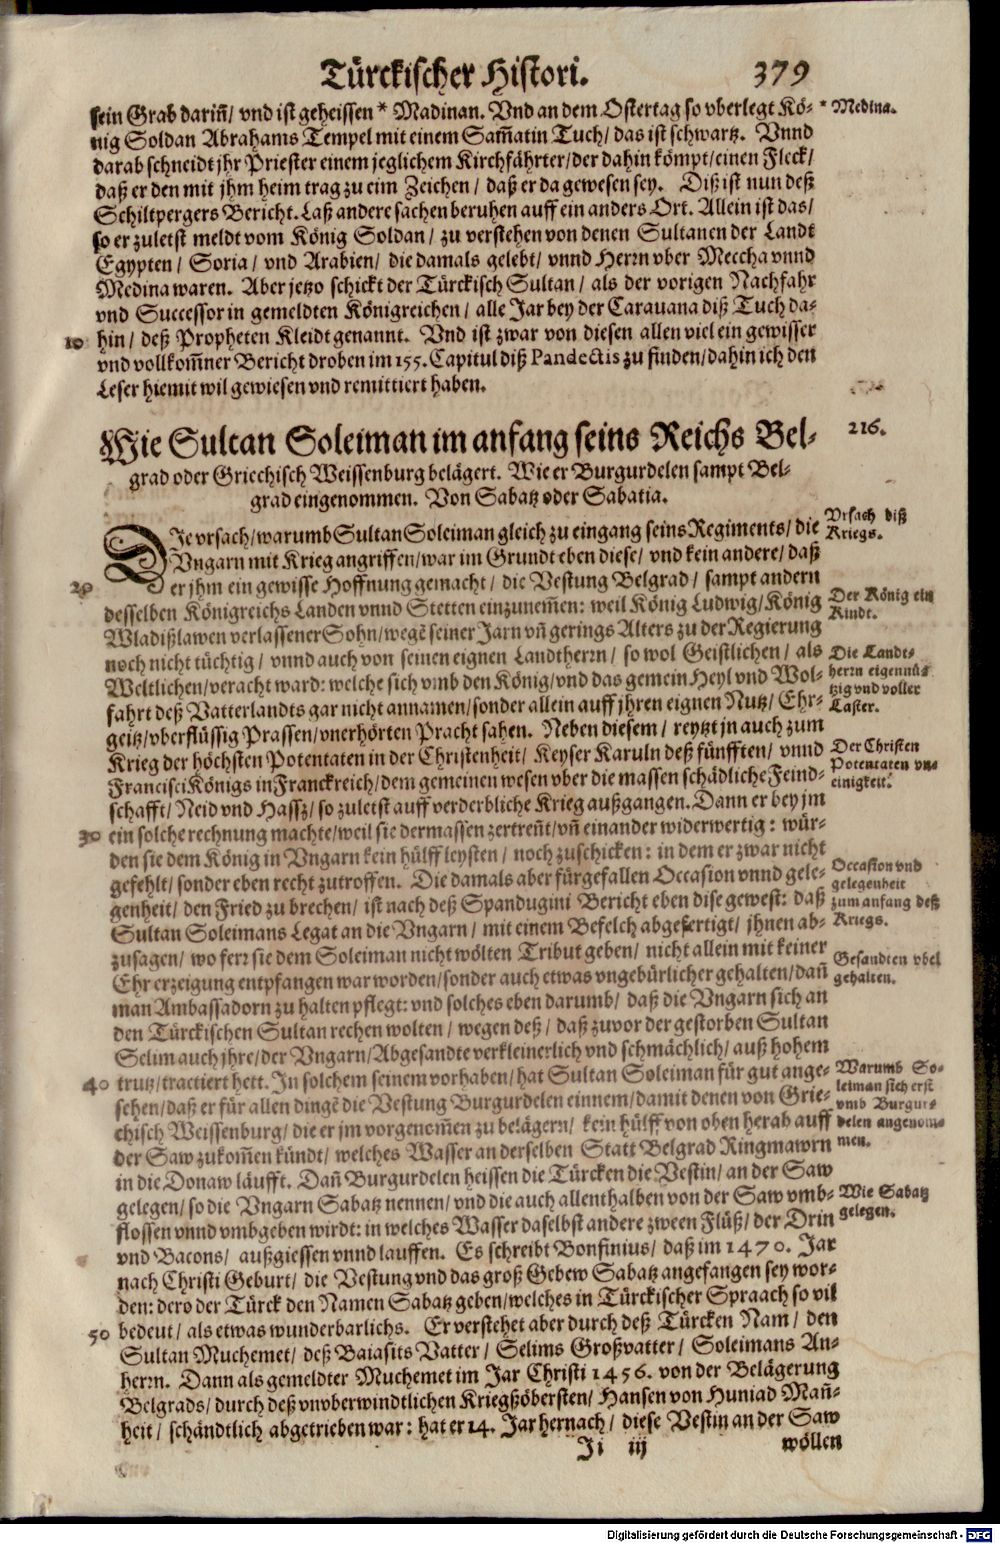 Türckischer Histori. 379
sein Grab dariñ/ vnd ist geheissen * Madinan. Vnd an dem Ostertag so vberlegt Kö-
* Medina.
nig Soldan Abrahams Tempel mit einem Sam̃atin Tuch/ das ist schwartz. Vnnd
darab schneidt jhr Priester einem jeglichem Kirchfährter/ der dahin kömpt/ einen Fleck/
daß er den mit jhm heim trag zu eim Zeichen/ daß er da gewesen sey. Diß ist nun deß
Schiltpergers Bericht. Laß andere sachen beruhen auff ein anders Ort. Allein ist das/
so er zuletst meldt vom König Soldan/ zu verstehen von denen Sultanen der Landt
Egypten/ Soria/ vnd Arabien/ die damals gelebt/ vnnd Herrn vber Meccha vnnd
Medina waren. Aber jetzo schickt der Türckisch Sultan/ als der vorigen Nachfahr
vnd Successor in gemeldten Königreichen/ alle Jar bey der Carauana diß Tuch da-
10 hin/ deß Propheten Kleidt genannt. Vnd ist zwar von diesen allen viel ein gewisser
vnd vollkom̃ner Bericht droben im 155. Capitul diß Pandectis zu finden/ dahin ich den
Leser hiemit wil gewiesen vnd remittiert haben.
Wie Sultan Soleiman im anfang seins Reichs Bel-
216.
grad oder Griechisch Weissenburg belägert. Wie er Burgurdelen sampt Bel-
grad eingenommen. Von Sabatz oder Sabatia.
DJe vrsach/ warumb Sultan Soleiman gleich zu eingang seins Regiments/ die
Vrsach diß
Kriegs.
Vngarn mit Krieg angriffen/ war im Grundt eben diese/ vnd kein andere/ daß
20 er jhm ein gewisse Hoffnung gemacht/ die Vestung Belgrad/ sampt andern
desselben Königreichs Landen vnnd Stetten einzunem̃en: weil König Ludwig/ König
Der König ein
Kindt.
Wladißlawen verlassener Sohn/ wegẽ seiner Jarn vñ gerings Alters zu der Regierung
noch nicht tüchtig/ vnnd auch von seinen eignen Landtherrn/ so wol Geistlichen/ als
Die Landt-
herrn eigennü-
tzig vnd voller
Laster.
Weltlichen/ veracht ward: welche sich vmb den König/ vnd das gemein Heyl vnd Wol-
fahrt deß Vatterlandts gar nicht annamen/ sonder allein auff jhren eignen Nutz/ Ehr-
geitz/ vberflüssig Prassen/ vnerhörten Pracht sahen. Neben diesem/ reytzt jn auch zum
Krieg der höchsten Potentaten in der Christenheit/ Keyser Karuln deß fünfften/ vnnd
Der Christen
Potentaten vn-
einigkeit.
Francisci Königs in Franckreich/ dem gemeinen wesen vber die massen schädliche Feind-
schafft/ Neid vnd Hassz/ so zuletst auff verderbliche Krieg außgangen. Dann er bey jm
30 ein solche rechnung machte/ weil sie dermassen zertreñt/ vñ einander widerwertig: wür-
den sie dem König in Vngarn kein hülff leysten/ noch zuschicken: in dem er zwar nicht
gefehlt/ sonder eben recht zutroffen. Die damals aber fürgefallen Occasion vnnd gele-
Occasion vnd
gelegenheit
zum anfang deß
Kriegs.
genheit/ den Fried zu brechen/ ist nach deß Spandugini Bericht eben dise gewest: daß
Sultan Soleimans Legat an die Vngarn/ mit einem Befelch abgefertigt/ jhnen ab-
zusagen/ wo ferr sie dem Soleiman nicht wölten Tribut geben/ nicht allein mit keiner
Gesandten vbel
gehalten.
Ehr erzeigung entpfangen war worden/ sonder auch etwas vngebürlicher gehalten/ dañ
man Ambassadorn zu halten pflegt: vnd solches eben darumb/ daß die Vngarn sich an
den Türckischen Sultan rechen wolten/ wegen deß/ daß zuvor der gestorben Sultan
Selim auch jhre/ der Vngarn/ Abgesandte verkleinerlich vnd schmächlich/ auß hohem
40 trutz/ tractiert hett. Jn solchem seinem vorhaben/ hat Sultan Soleiman für gut ange-
Warumb So-
leiman sich erst
vmb Burgur-
delen angenom-
men.
sehen/ daß er für allen dingẽ die Vestung Burgurdelen einnem/ damit denen von Grie-
chisch Weissenburg/ die er jm vorgenom̃en zu belägern/ kein hülff von oben herab auff
der Saw zukom̃en kündt/ welches Wasser an derselben Statt Belgrad Ringmawrn
in die Donaw läufft. Dañ Burgurdelen heissen die Türcken die Vestin/ an der Saw
gelegen/ so die Vngarn Sabatz nennen/ vnd die auch allenthalben von der Saw vmb-
Wie Sabatz
gelegen.
flossen vnnd vmbgeben wirdt: in welches Wasser daselbst andere zween Flüß/ der Drin
vnd Bacons/ außgiessen vnnd lauffen. Es schreibt Bonfinius/ daß im 1470. Jar
nach Christi Geburt/ die Vestung vnd das groß Gebew Sabatz angefangen sey wor-
den: dero der Türck den Namen Sabatz geben/ welches in Türckischer Spraach so vil
50 bedeut/ als etwas wunderbarlichs. Er verstehet aber durch deß Türcken Nam/ den
Sultan Muchemet/ deß Baiasits Vatter/ Selims Großvatter/ Soleimans An-
herrn. Dann als gemeldter Muchemet im Jar Christi 1456. von der Belägerung
Belgrads/ durch deß vnvberwindtlichen Kriegßöbersten/ Hansen von Huniad Mañ-
heit/ schändtlich abgetrieben war: hat er 14. Jar hernach/ diese Vestin an der Saw
Ji iij wöllen
Digitalisierung gefördert durch die Deutsche Forschungsgemeinschaft - DFG